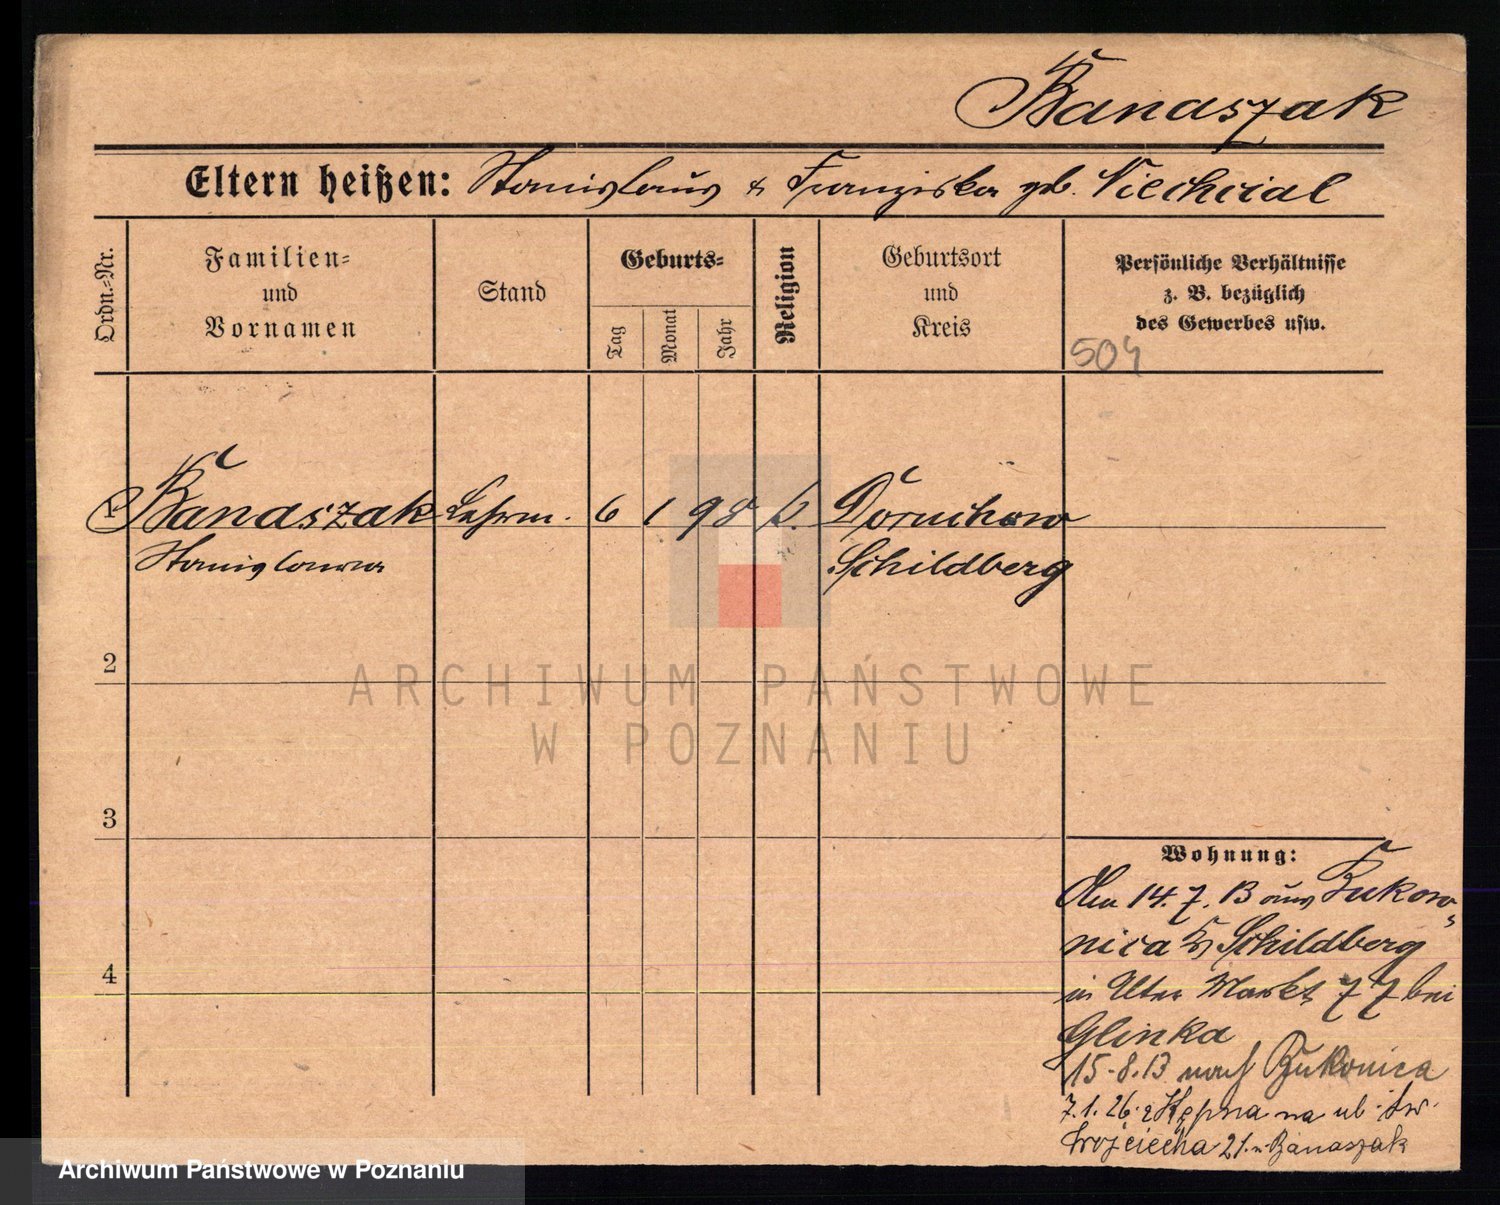 Banaszak
Eltern heißen: Stanislaus & Franziska geb. Niechcial
Ordn.-Nr.
Familien-
und
Vornamen
Stand
Geburts-
Tag
Monat
Jahr
Religion
Geburtsort
und
Kreis
Persönliche Verhältnisse
z. B. bezüglich
des Gewerbes usw.
504
1 Banaszak Lehrm. 6 1 98 k. Doruchow
Stanislawa Schildberg
ARCHIWUM PAŃSTWOWE
W POZNANIU
2
3
4
Wohnung:
14. 7. 13 aus Bukow-
nica Schildberg
in Alter Markt 77 bei
Glinka
15-8.13 nach Bukonica
7.1.26 z Kępna na ul. św.
Wojciecha 21 Banaszak
Archiwum Państwowe w Poznaniu